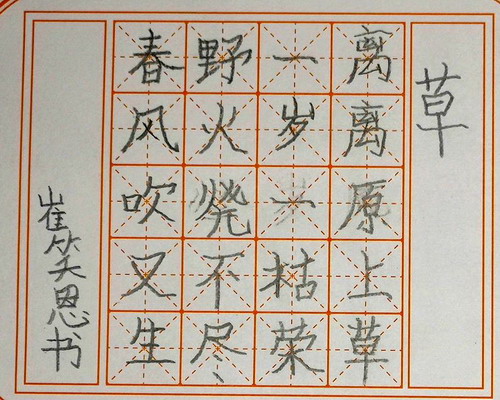 草
离离原上草
一岁一枯荣
野火烧不尽
春风吹又生
崔笑恩书